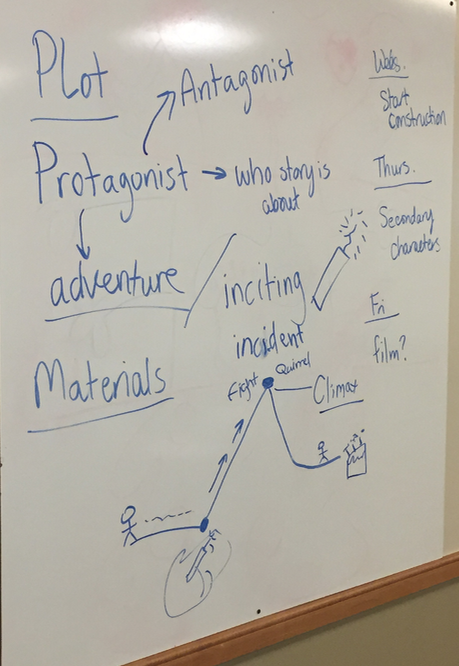 Plot
Antagonist
Protagonist → who story is
about
adventure
inciting
incident
Materials
Fight Quirrel
Climax
Weds.
Start
Construction
Thurs.
Secondary
characters
Fri
film?